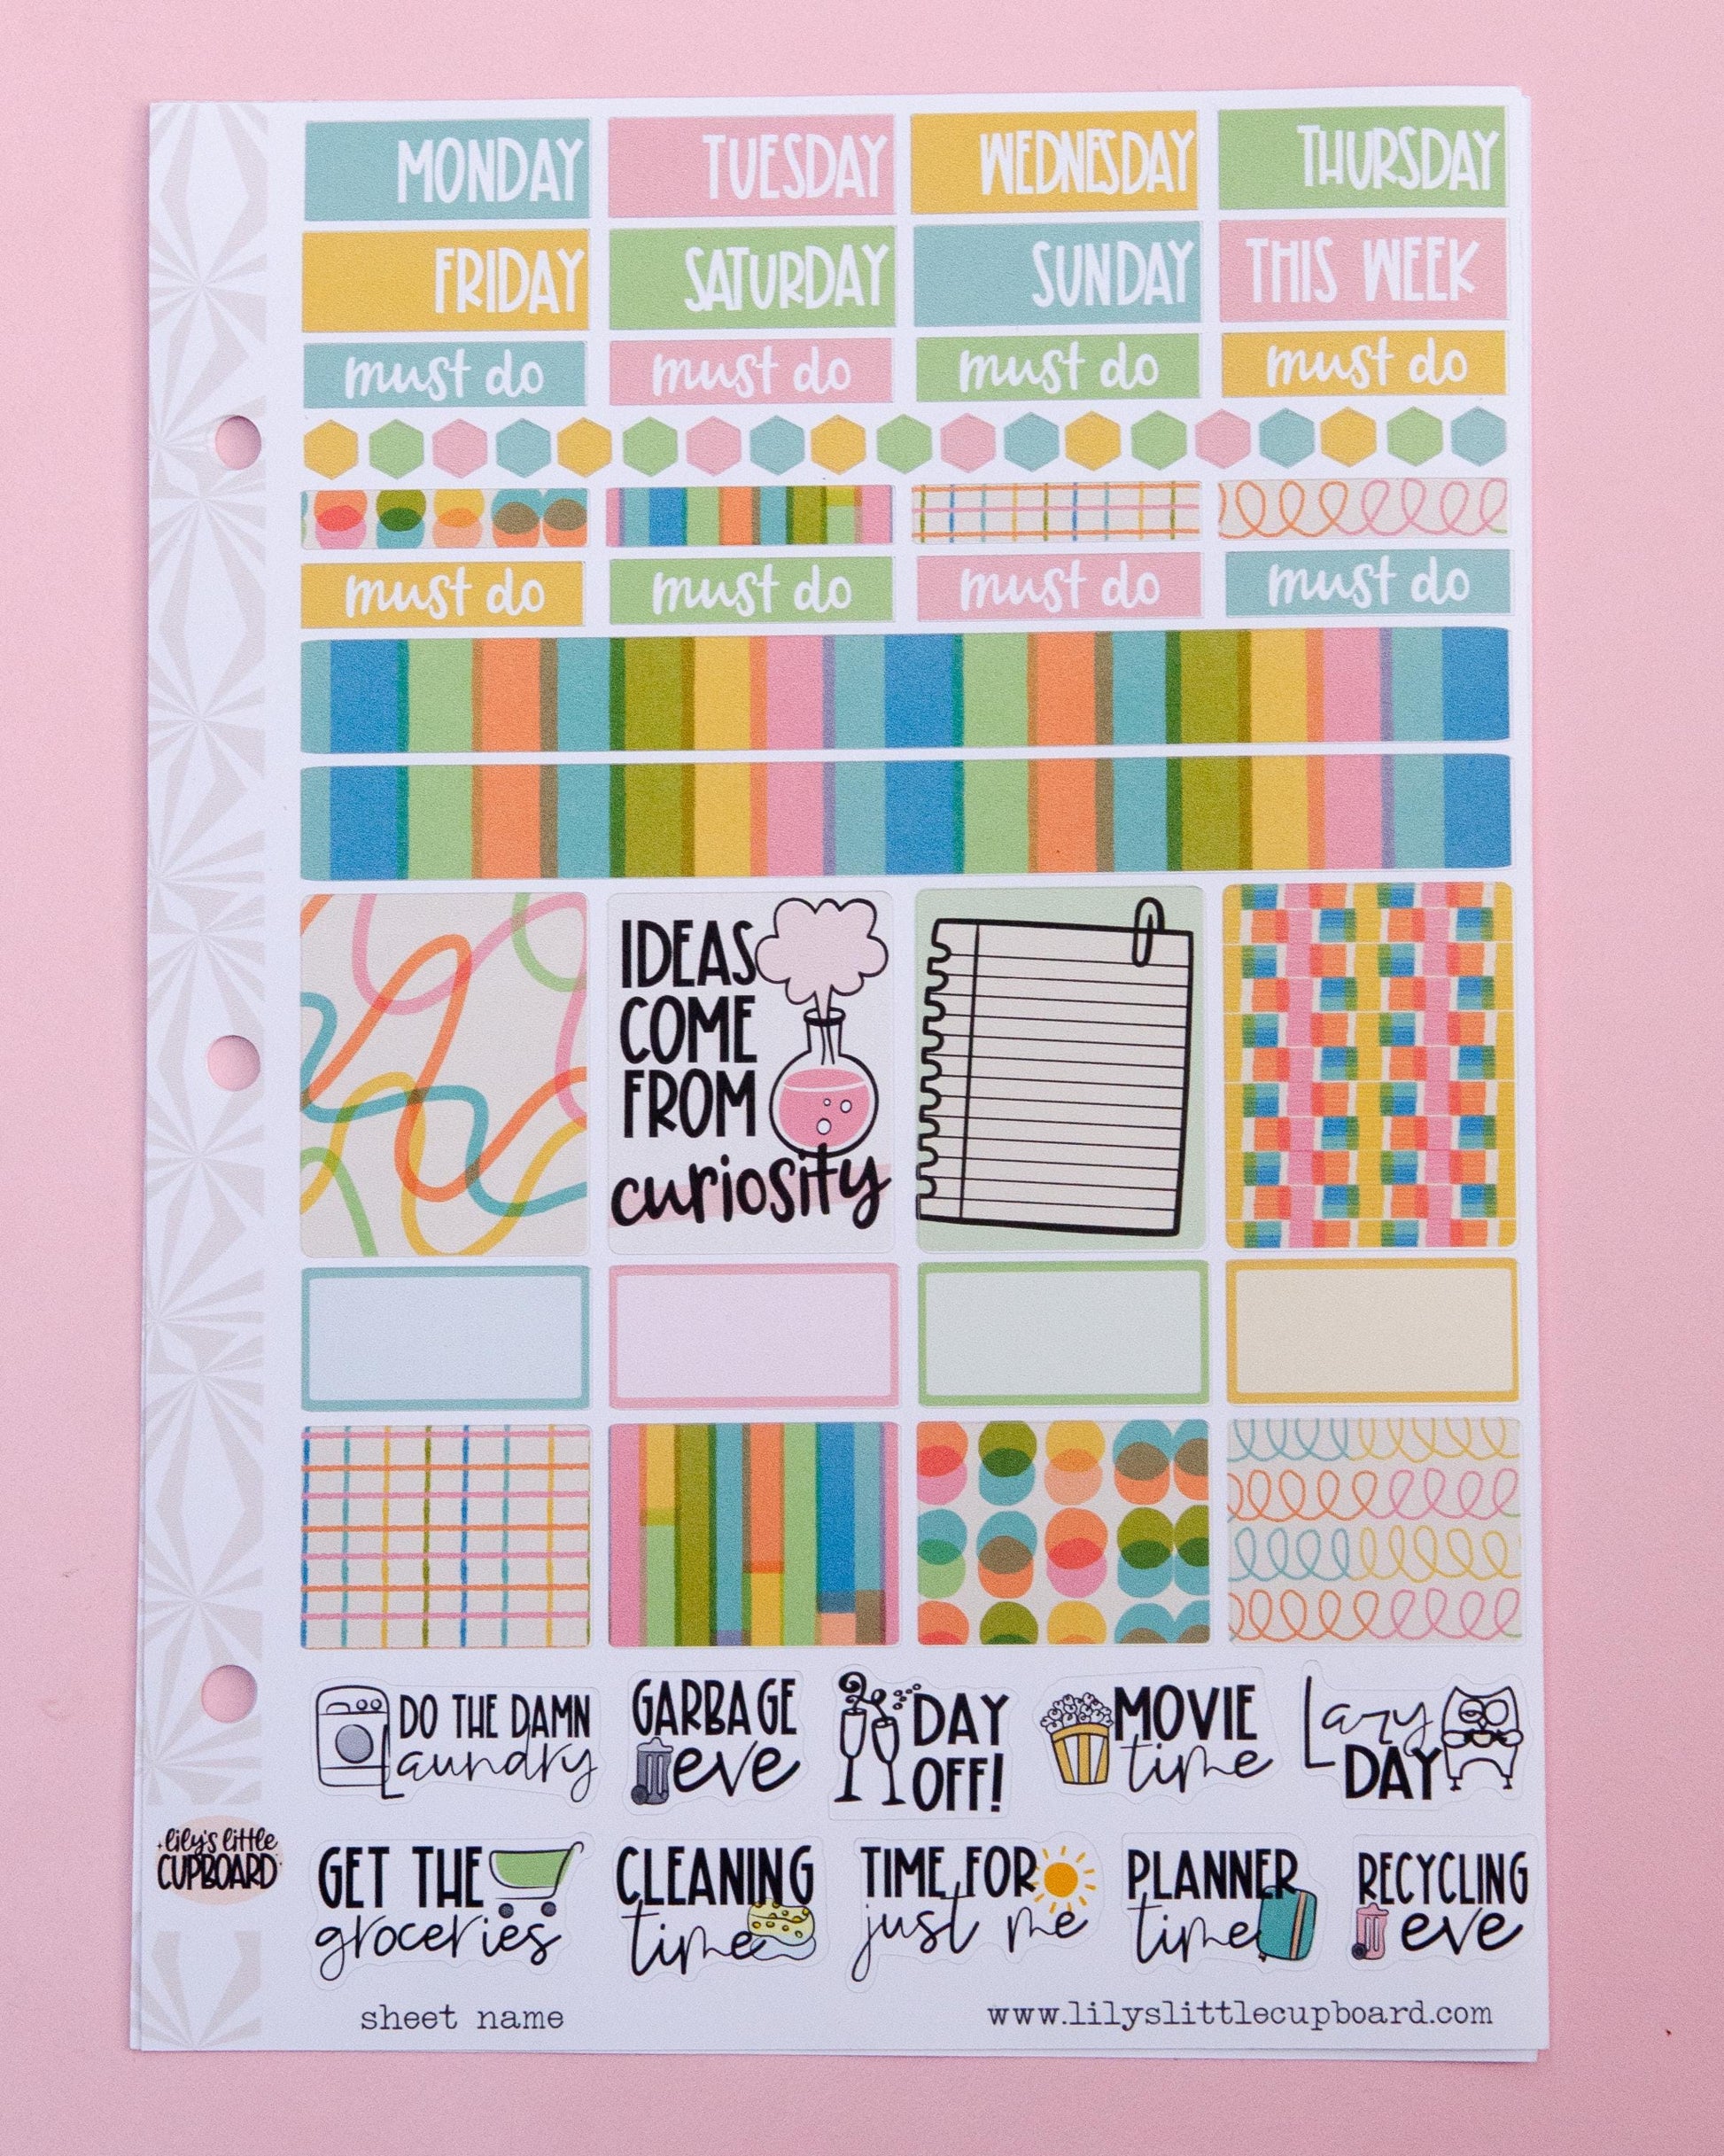 MONDAY TUESDAY WEDNESDAY THURSDAY
FRIDAY SATURDAY SUNDAY THIS WEEK
must do must do must do must do
must do must do must do must do
IDEAS
COME
FROM
curiosity
DO THE DAMN
Laundry
GARBAGE
eve
DAY
OFF!
MOVIE
time
Lazy
DAY
lily's little
CUPBOARD
GET THE
groceries
CLEANING
time
TIME FOR
just me
PLANNER
time
RECYCLING
eve
sheet name
www.lilyslittlecupboard.com